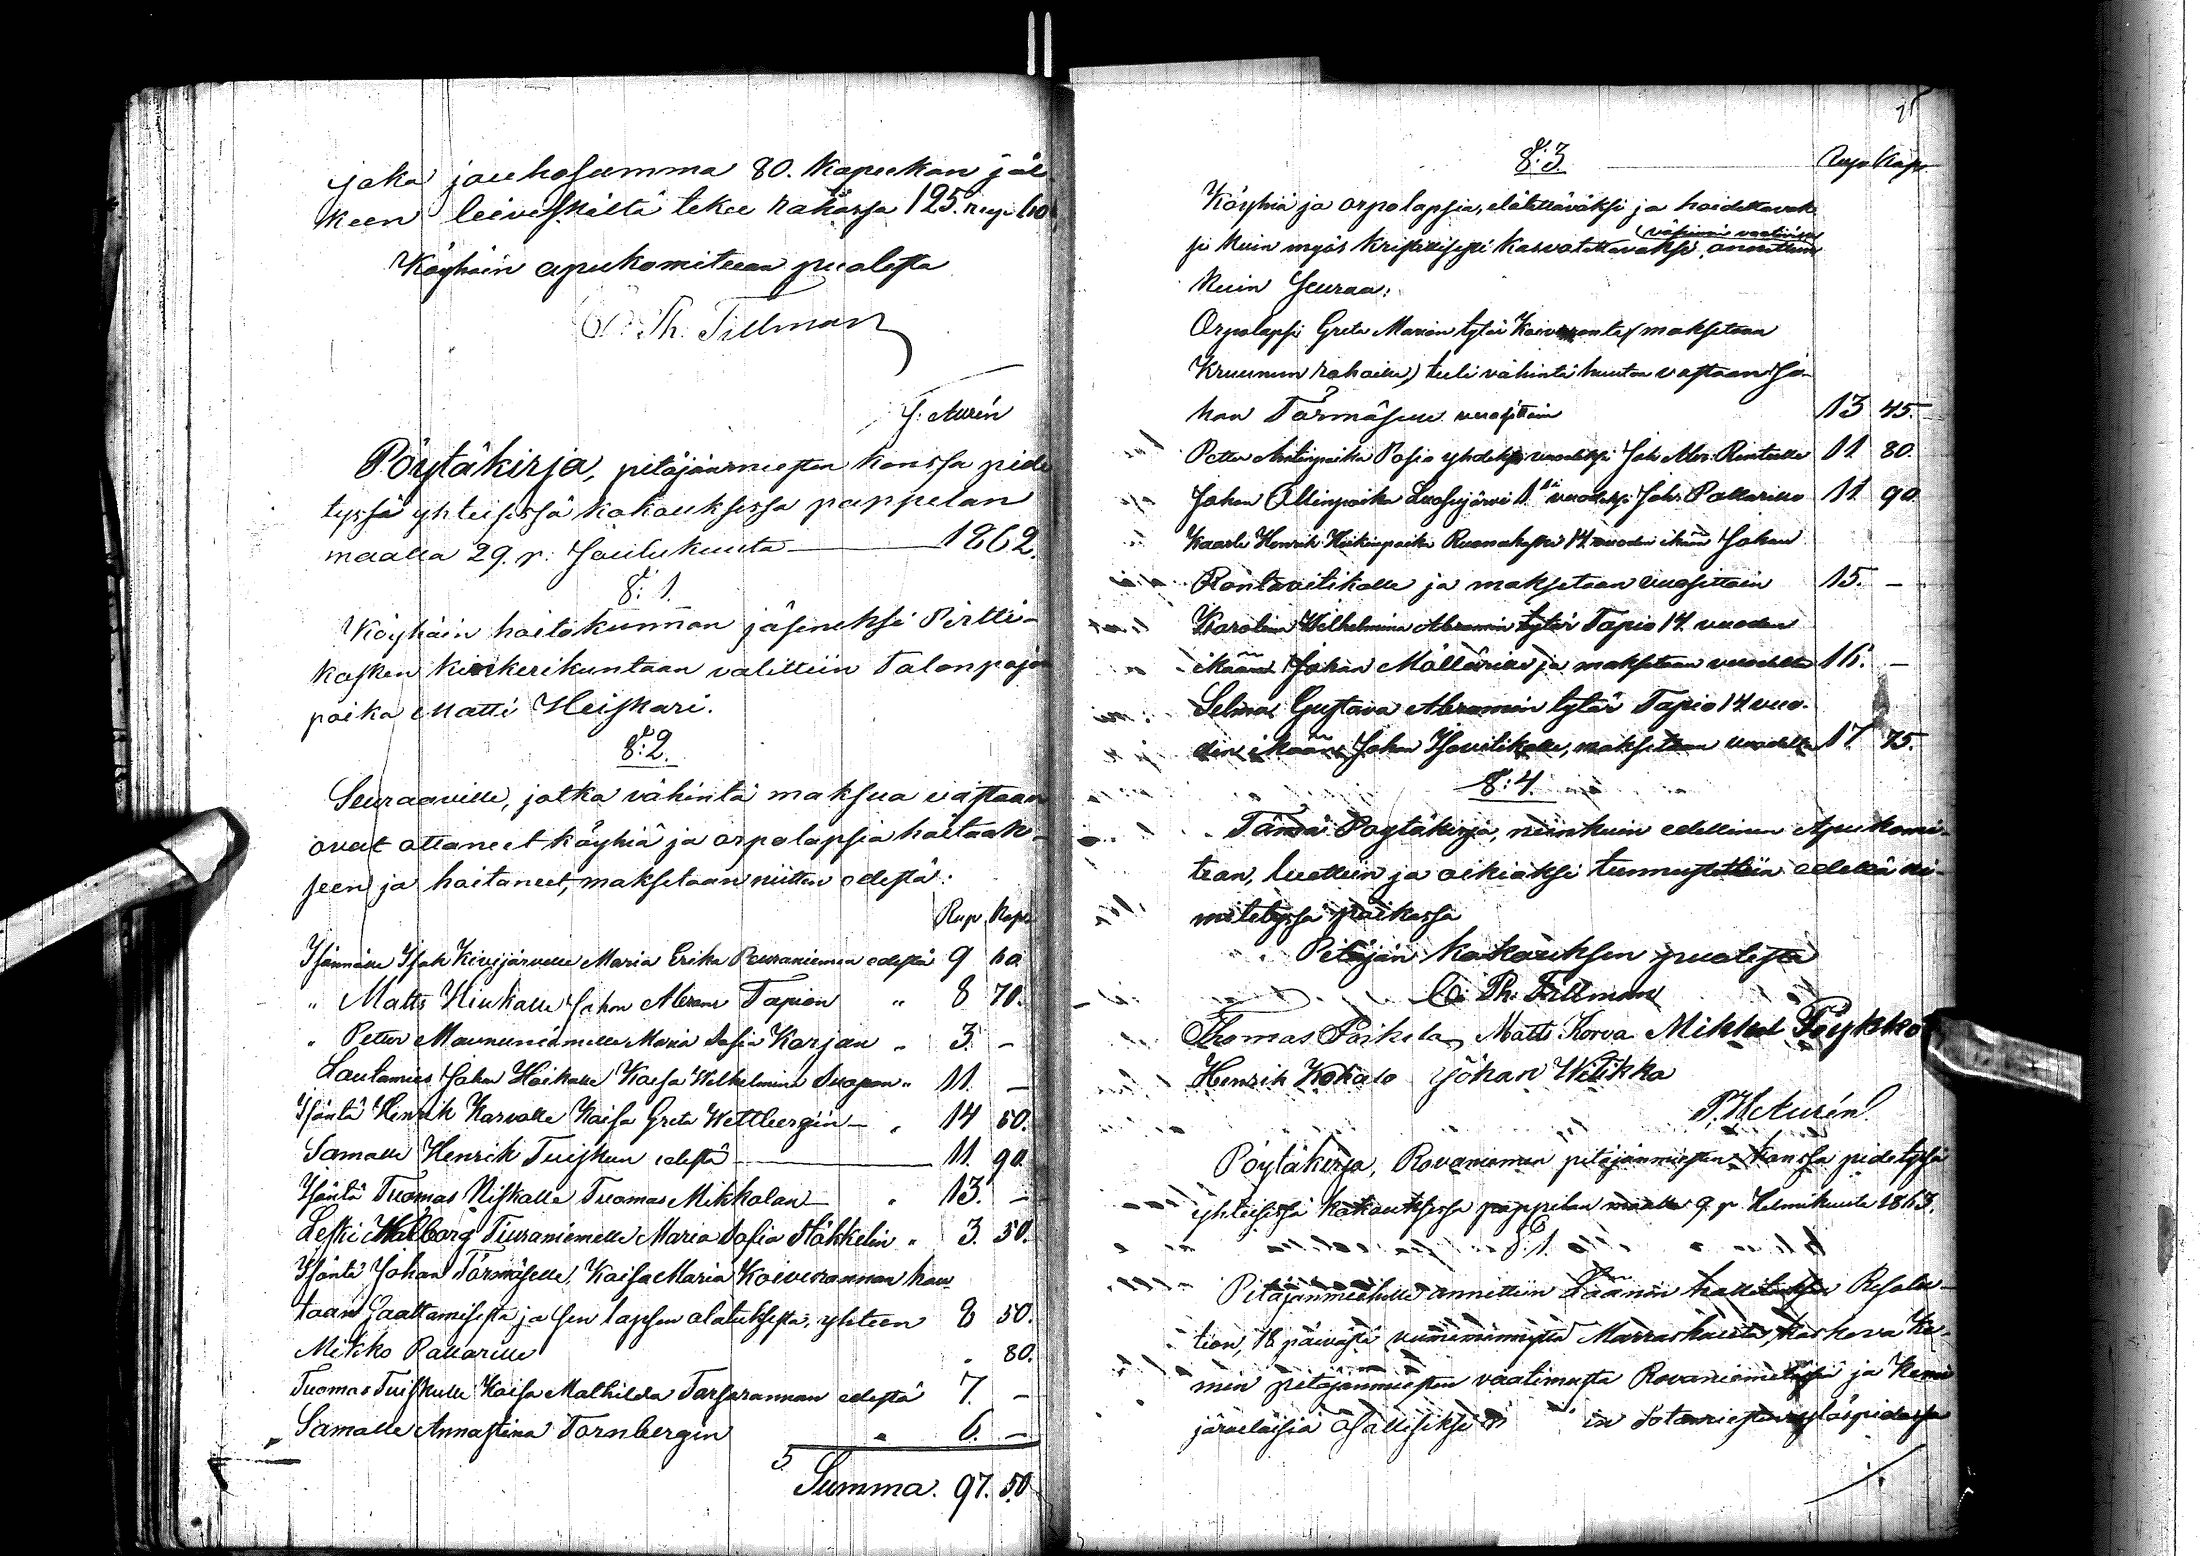 joka jauhosumma 80. Kapeekan jäl-
keen leiveskältä tekee rahassa 125. rup. 60
Köyhäin apukomiteean puolesta
C. Th. Tillman
J. Aurén
Pöytäkirja, pitäjänmiesten kanssa pide
tyssä yhteisessä kokouksessa pappelan
maalla 29. p. Joulukuuta 1862.
§: 1.
Köyhäin hoitokunnan jäseneksi Pirtti-
kosken kinkerikuntaan valittiin Talonpojan
poika Matti Heiskari.
§: 2.
Seuraaville, jotka vähintä maksua vastaan
ovat ottaneet köyhiä ja orpolapsia hoitaak-
seen ja hoitaneet, maksetaan niitten edestä:
Rup. Kap.
Isännälle Isak Kivijärvelle Maria Erika Peuraniemen edestä 9 60
" Matts Hiukalle Johan Abram Tapion " 8 70.
" Petter Maununiemelle Maria Sofia Karjan " 3. -
Lautamies Johan Hoikalle Kaisa Wilhelmina Suopan " 11. -
Isäntä Henrik Karvalle Kaisa Greta Wettbergin - " 14 50.
Samalle Henrik Tuiskun edestä 11. 90.
Isäntä Tuomas Niskalle Tuomas Mikkolan - " 13. -
Leski Walborg Tiuraniemelle Maria Sofia Häkkelin " 3. 50.
Isäntä Johan Törmäselle, Kaisa Maria Koivurannan hau
taan saattamisesta ja sen lapsen alatuksesta, yhteen 8 50.
Mikko Pallarille " 80.
Tuomas Tuiskulle Kaisa Mathilda Tarsarannan edestä 7. -
Samalle Annastina Tornbergin " 6. -
Summa. 97. 50
§: 3. Rup. Kap.
Köyhiä ja orpolapsia, elätettäväksi ja hoidettavak
si kuin myös kristillisesti kasvatettavaksi, annettiin
kuin seuraa:
Orpolapsi Greta Marian tytär (maksetaan
Kruunun rahoilla) tuli vähintä huutoa vastaan Jo-
han Törmäselle vuosittain 13 45.
Petter Antinpoika Posio yhdeksi vuodeksi Joh. Abr. Rontille 11 80.
Johan Ollinpoika Luosujärvi 1 vuodeksi Joh. Pallarille 11 90
Kaarle Henrik Heikinpoika Ruonakoski 14. vuoden ikään Johan
Rantavitikalle ja maksetaan vuosittain 15. -
Karolina Wilhelmina Abramin tytär Tapio 14. vuoden
ikään Johan Möllärille ja maksetaan vuodelta 16. -
Selma Gustava Abramin tytär Tapio 14. vuo-
den ikään Johan Isovitikalle, maksetaan vuodelta 17 75.
§: 4.
Tämä Pöytäkirja, niinkuin edellinen Apukomi-
tean, luettiin ja oikiaksi tunnustettiin edellä ni-
mitetyssä paikassa
Pitäjän kokouksen puolesta
C. Th. Tillman
Thomas Poikela Matts Korva Mikkel Pöykkö
Henrik Kokalo Johan Witikka
P. H. Aurén
Pöytäkirja, Rovaniemen pitäjänmiesten kanssa pidetyssä
yhteisessä kokouksessa pappilan maalla 9. p. Helmikuuta 1863.
§: 1.
Pitäjänmiehille annettiin Läänin hallituksen Resolu-
tion, 18 päivästä viimemennyttä Marraskuuta, koskeva Ke-
min pitäjänmiesten vaatimusta Rovaniemeläisiä ja Kemi
järveläisiä osallisiksi in Sotamiesten ylöspidossa